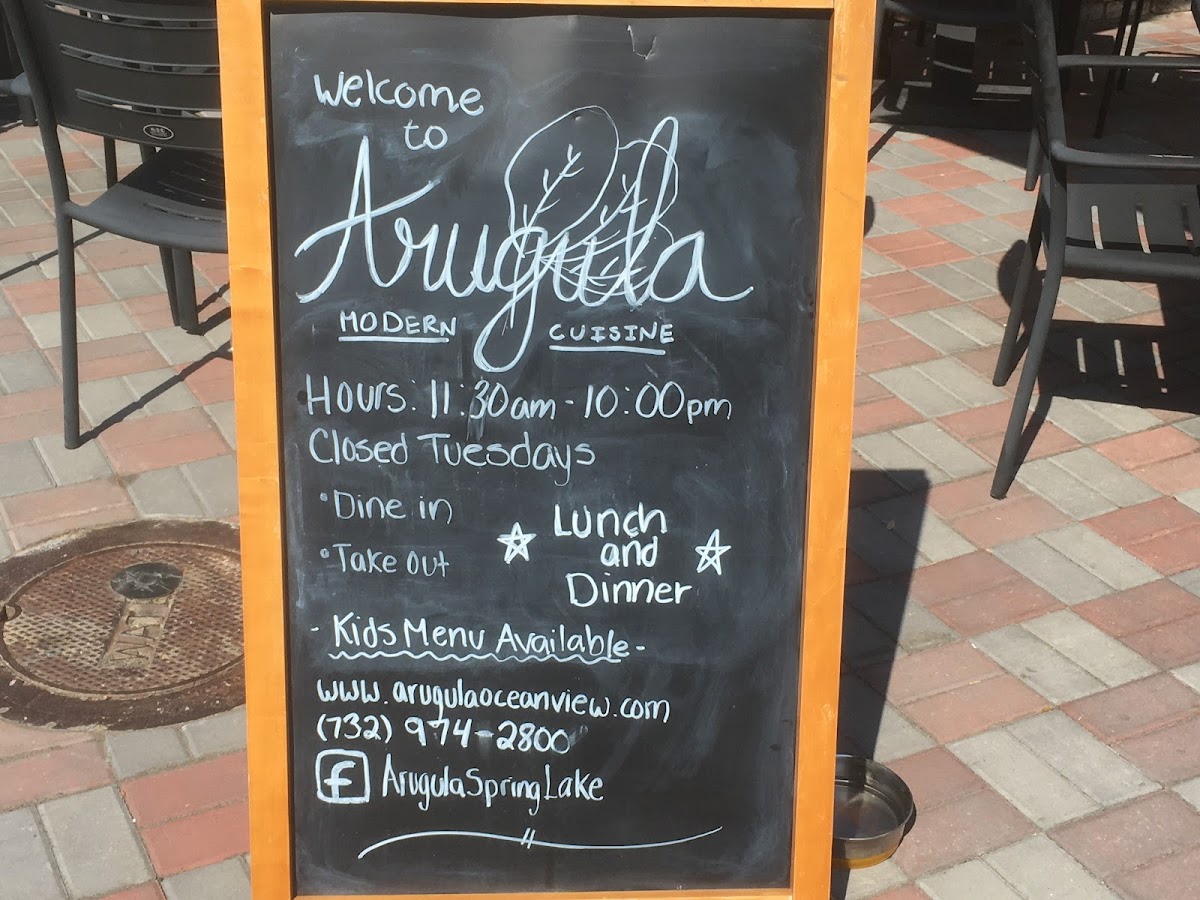 Welcome
to
Arugula
MODERN CUISINE
Hours: 11:30am - 10:00pm
Closed Tuesdays
• Dine in
• Take out
Lunch
and
Dinner
- Kids Menu Available -
www.arugulaoceanview.com
(732) 974-2800
f ArugulaSpringLake